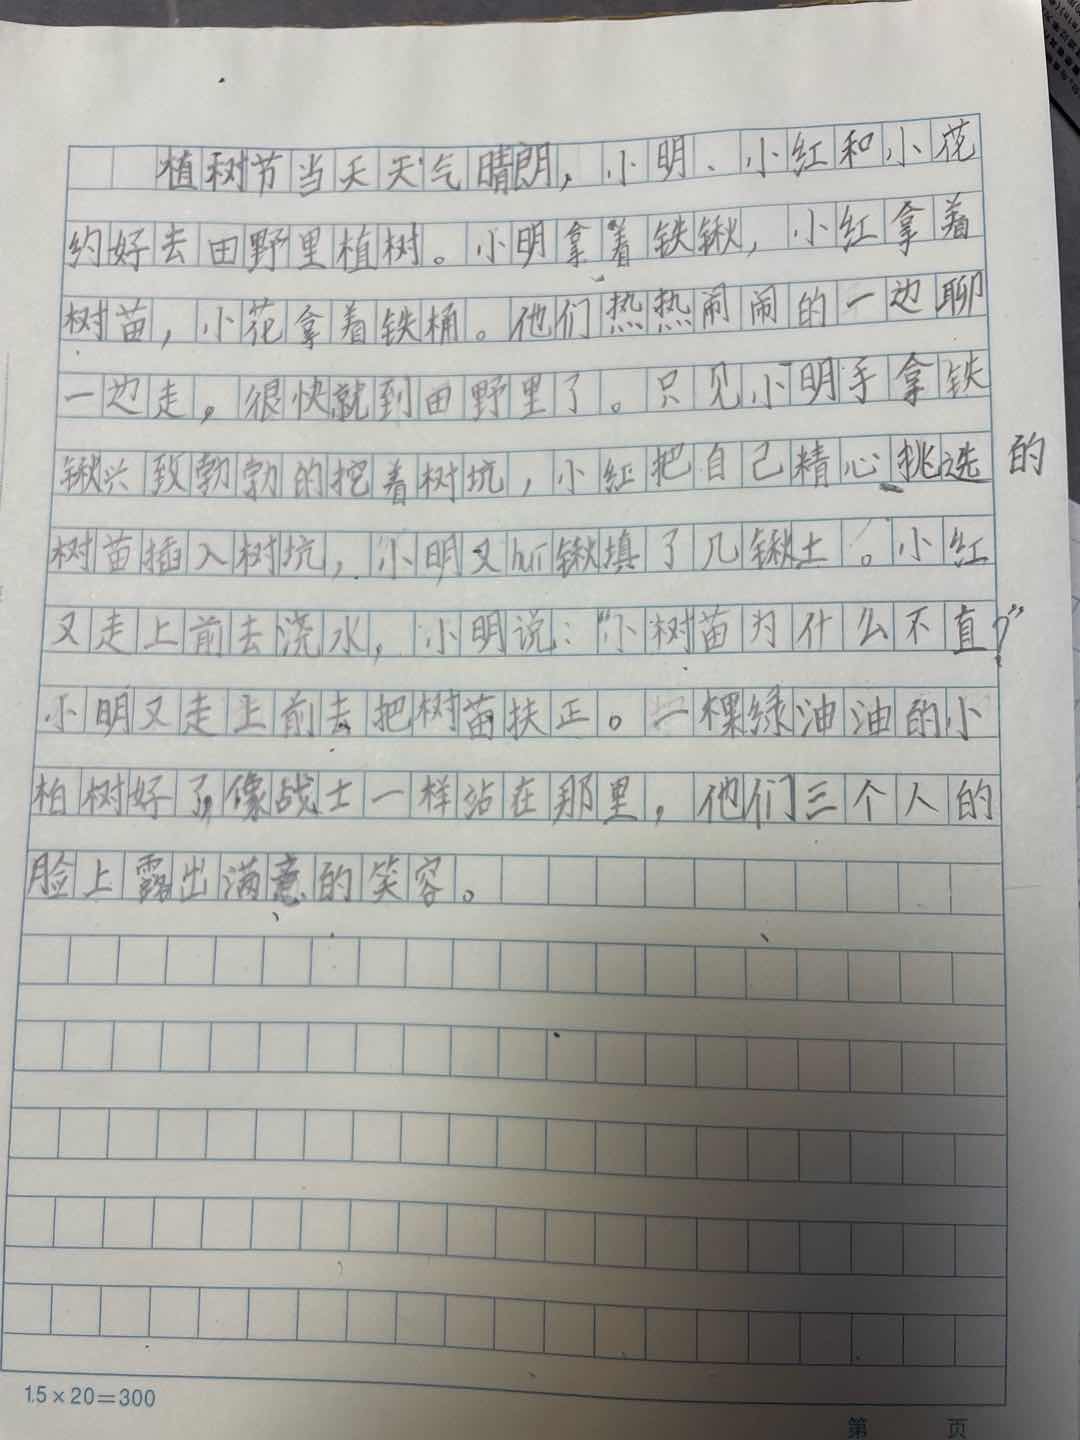 植树节当天天气晴朗，小明、小红和小花
约好去田野里植树。小明拿着铁锹，小红拿着
树苗，小花拿着铁桶。他们热热闹闹的一边聊
一边走，很快就到田野里了。只见小明手拿铁
锹兴致勃勃的挖着树坑，小红把自己精心挑选的
树苗插入树坑，小明又用锹填了几锹土。小红
又走上前去浇水，小明说：“小树苗为什么不直？”
小明又走上前去把树苗扶正。一棵绿油油的小
柏树好了，像战士一样站在那里，他们三个人的
脸上露出满意的笑容。
15×20=300
第 页